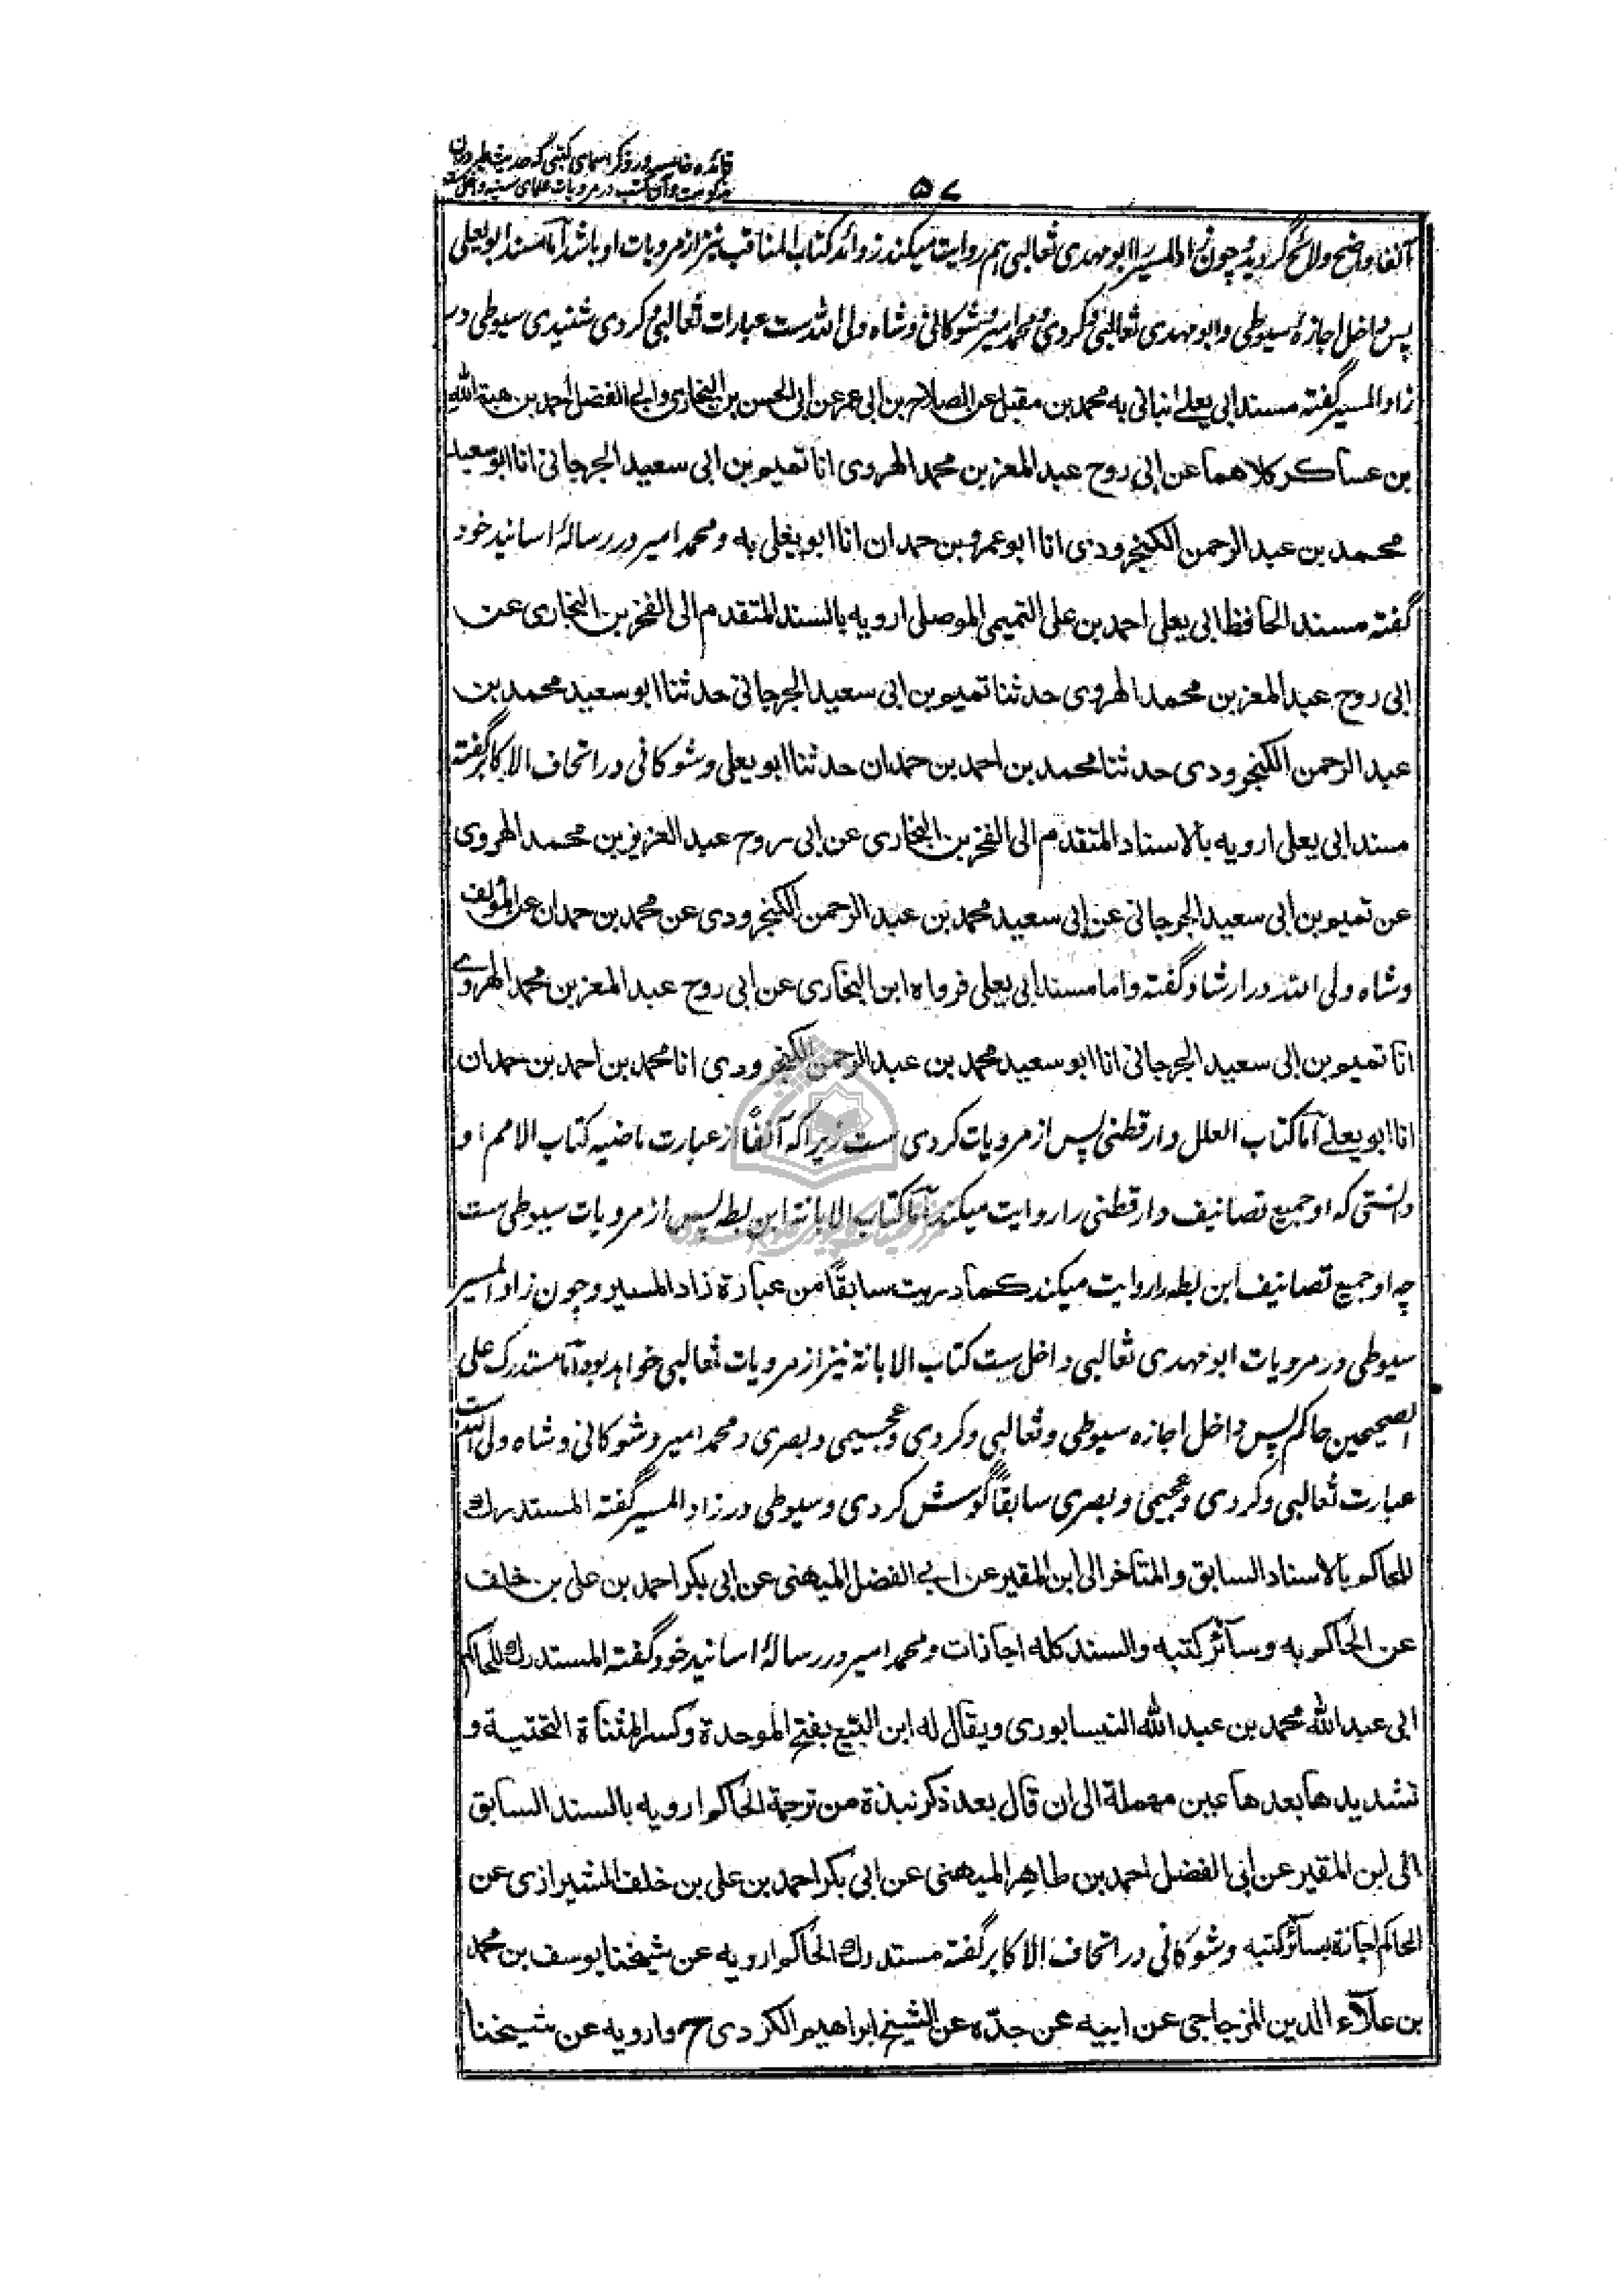 فائده خامسه در ذکر اسمای کتبی که حدیث طیر دران
مذکورست و آن کتب در مرویات علمای سنیه داخل ست
۵۷
آنفا واضح ولائح گردیده چون زاد المسیر را ابو مهدی ثعالبی هم روایت میکند زوائد کتاب المناقب نیز از مرویات او باشد اما مسند ابو یعلی
پس داخل اجازهٔ سیوطی و ابو مهدی ثعالبی و کردی و محمد امیر و شوکانی و شاه ولی الله ست عبارات ثعالبی و کردی شنیدی سیوطی در
زاد المسیر گفته مسند ابی یعلے انبانی به محمد بن مقبل عن الصلاح بن ابی عمر عن ابی الحسن بن البخاری وابی الفضل احمد بن هبة الله
بن عساکر کلاهما عن ابی روح عبد المعز بن محمد الهروی انا تمیم بن ابی سعید الجرجانی انا ابو سعید
محمد بن عبد الرحمن الکنجرودی انا ابو عمرو بن حمدان انا ابو یعلی به و محمد امیر در رسالهٔ اسانید خود
گفته مسند الحافظ ابی یعلی احمد بن علی التمیمی الموصلی ارویه بالسند المتقدم الی الفخر بن البخاری عن
ابی روح عبد المعز بن محمد الهروی حدثنا تمیم بن ابی سعید الجرجانی حدثنا ابو سعید محمد بن
عبد الرحمن الکنجرودی حدثنا محمد بن احمد بن حمدان حدثنا ابو یعلی و شوکانی در اتحاف الاکابر گفته
مسند ابی یعلی ارویه بالاسناد المتقدم الی الفخر بن البخاری عن ابی روح عبد العزیز بن محمد الهروی
عن تمیم بن ابی سعید الجرجانی عن ابی سعید محمد بن عبد الرحمن الکنجرودی عن محمد بن حمدان عن المؤلف
و شاه ولی الله در ارشاد گفته واما مسند ابی یعلی فرواه ابن البخاری عن ابی روح عبد المعز بن محمد الهروے
انا تمیم بن ابی سعید الجرجانی انا ابو سعید محمد بن عبد الرحمن الکنجرودی انا محمد بن احمد بن حمدان
انا ابو یعلے اما کتاب العلل دارقطنی پس از مرویات کردی ست زیرا که آنفاً از عبارت ماضیه کتاب الامم او
دانستی که او جمیع تصانیف دارقطنی را روایت میکند اما کتاب الابانه ابن بطه پس از مرویات سیوطی ست
چه او جمیع تصانیف ابن بطه را روایت میکند کما دریت سابقاً من عبارة زاد المسیر و چون زاد المسیر
سیوطی در مرویات ابو مهدی ثعالبی داخل ست کتاب الابانة نیز از مرویات ثعالبی خواهد بود اما مستدرک علی
الصحیحین حاکم پس داخل اجازه سیوطی و ثعالبی و کردی و عجیمی و بصری و محمد امیر و شوکانی و شاه ولی الله ست
عبارت ثعالبی و کردی و عجیمی و بصری سابقاً گوش کردی و سیوطی در زاد المسیر گفته المستدرك
للحاکم بالاسناد السابق والمتأخر الی ابن المقیر عن ابی الفضل المیهنی عن ابی بکر احمد بن علی بن خلف
عن الحاکم به وسائر کتبه والسند کله اجازات و محمد امیر در رسالهٔ اسانید خود گفته المستدرك للحاکم
ابی عبد الله محمد بن عبد الله النیسابوری ویقال له ابن البیّع بفتح الموحدة وکسر المثناة التحتیة و
تشدیدها بعدها عین مهملة الی ان قال بعد ذکر نبذة من ترجمة الحاکم ارویه بالسند السابق
الی ابن المقیر عن ابی الفضل احمد بن طاهر المیهنی عن ابی بکر احمد بن علی بن خلف الشیرازی عن
الحاکم اجازة بسائر کتبه و شوکانی در اتحاف الاکابر گفته مستدرك الحاکم ارویه عن شیخنا یوسف بن محمد
بن علآء الدین المزجاجی عن ابیه عن جدّه عن الشیخ ابراهیم الکردی ح وارویه عن شیخنا